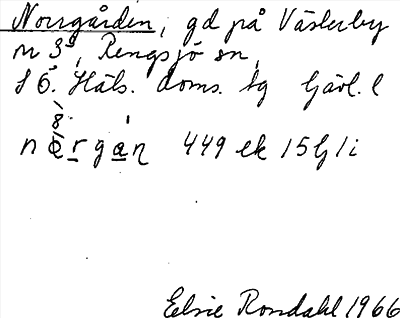 Norrgården, gd på Västerby
nr 3⁵, Rengsjö sn,
S ö. Häls. doms. tg Gävl. l
8
n ö r g a n 449 ek 15 G 1 i
Elsie Rondahl 1966